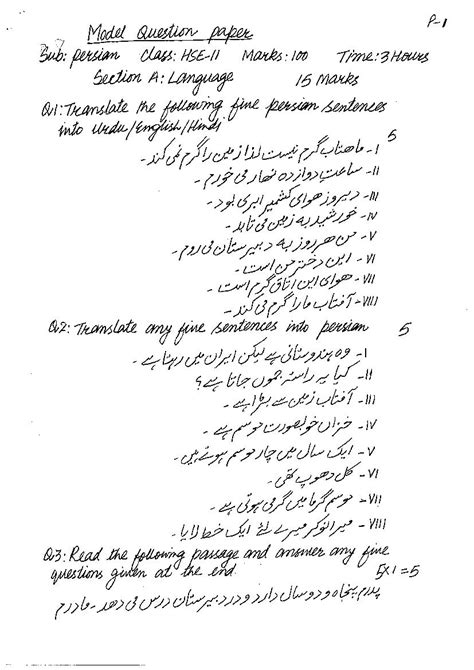 P-1
Model Question paper
Sub: persian Class: HSE-II Marks: 100 Time: 3 Hours
Section A: Language 15 Marks
Q1: Translate the following five persian sentences
into Urdu/English/Hindi 5
I- ماهتاب گرم نیست لذا زمین را گرم نمی کند -
II- ساعت دوازده نهار می خورم -
III- دیروز هوای کشمیر ابری بود -
IV- خورشید به زمین می تابد -
V- من هر روز به دبیرستان می روم -
VI- این دختر من است -
VII- هوای این اتاق گرم است -
VIII- آفتاب ما را گرم می کند -
Q2: Translate any five sentences into persian 5
I- وہ ہندوستانی ہے لیکن ایران میں رہتا ہے -
II- کیا یہ راستہ جموں جاتا ہے؟
III- آفتاب زمین سے بڑا ہے -
IV- خزاں خوبصورت موسم ہے -
V- ایک سال میں چار موسم ہوتے ہیں -
VI- کل دھوپ تھی -
VII- موسم گرما میں گرمی ہوتی ہے -
VIII- میرا نوکر میرے لئے ایک خط لایا -
Q3: Read the following passage and answer any five
questions given at the end. 5x1=5
پدرم پنجاه و دو سال دارد و در دبیرستان درس می دهد - مادرم